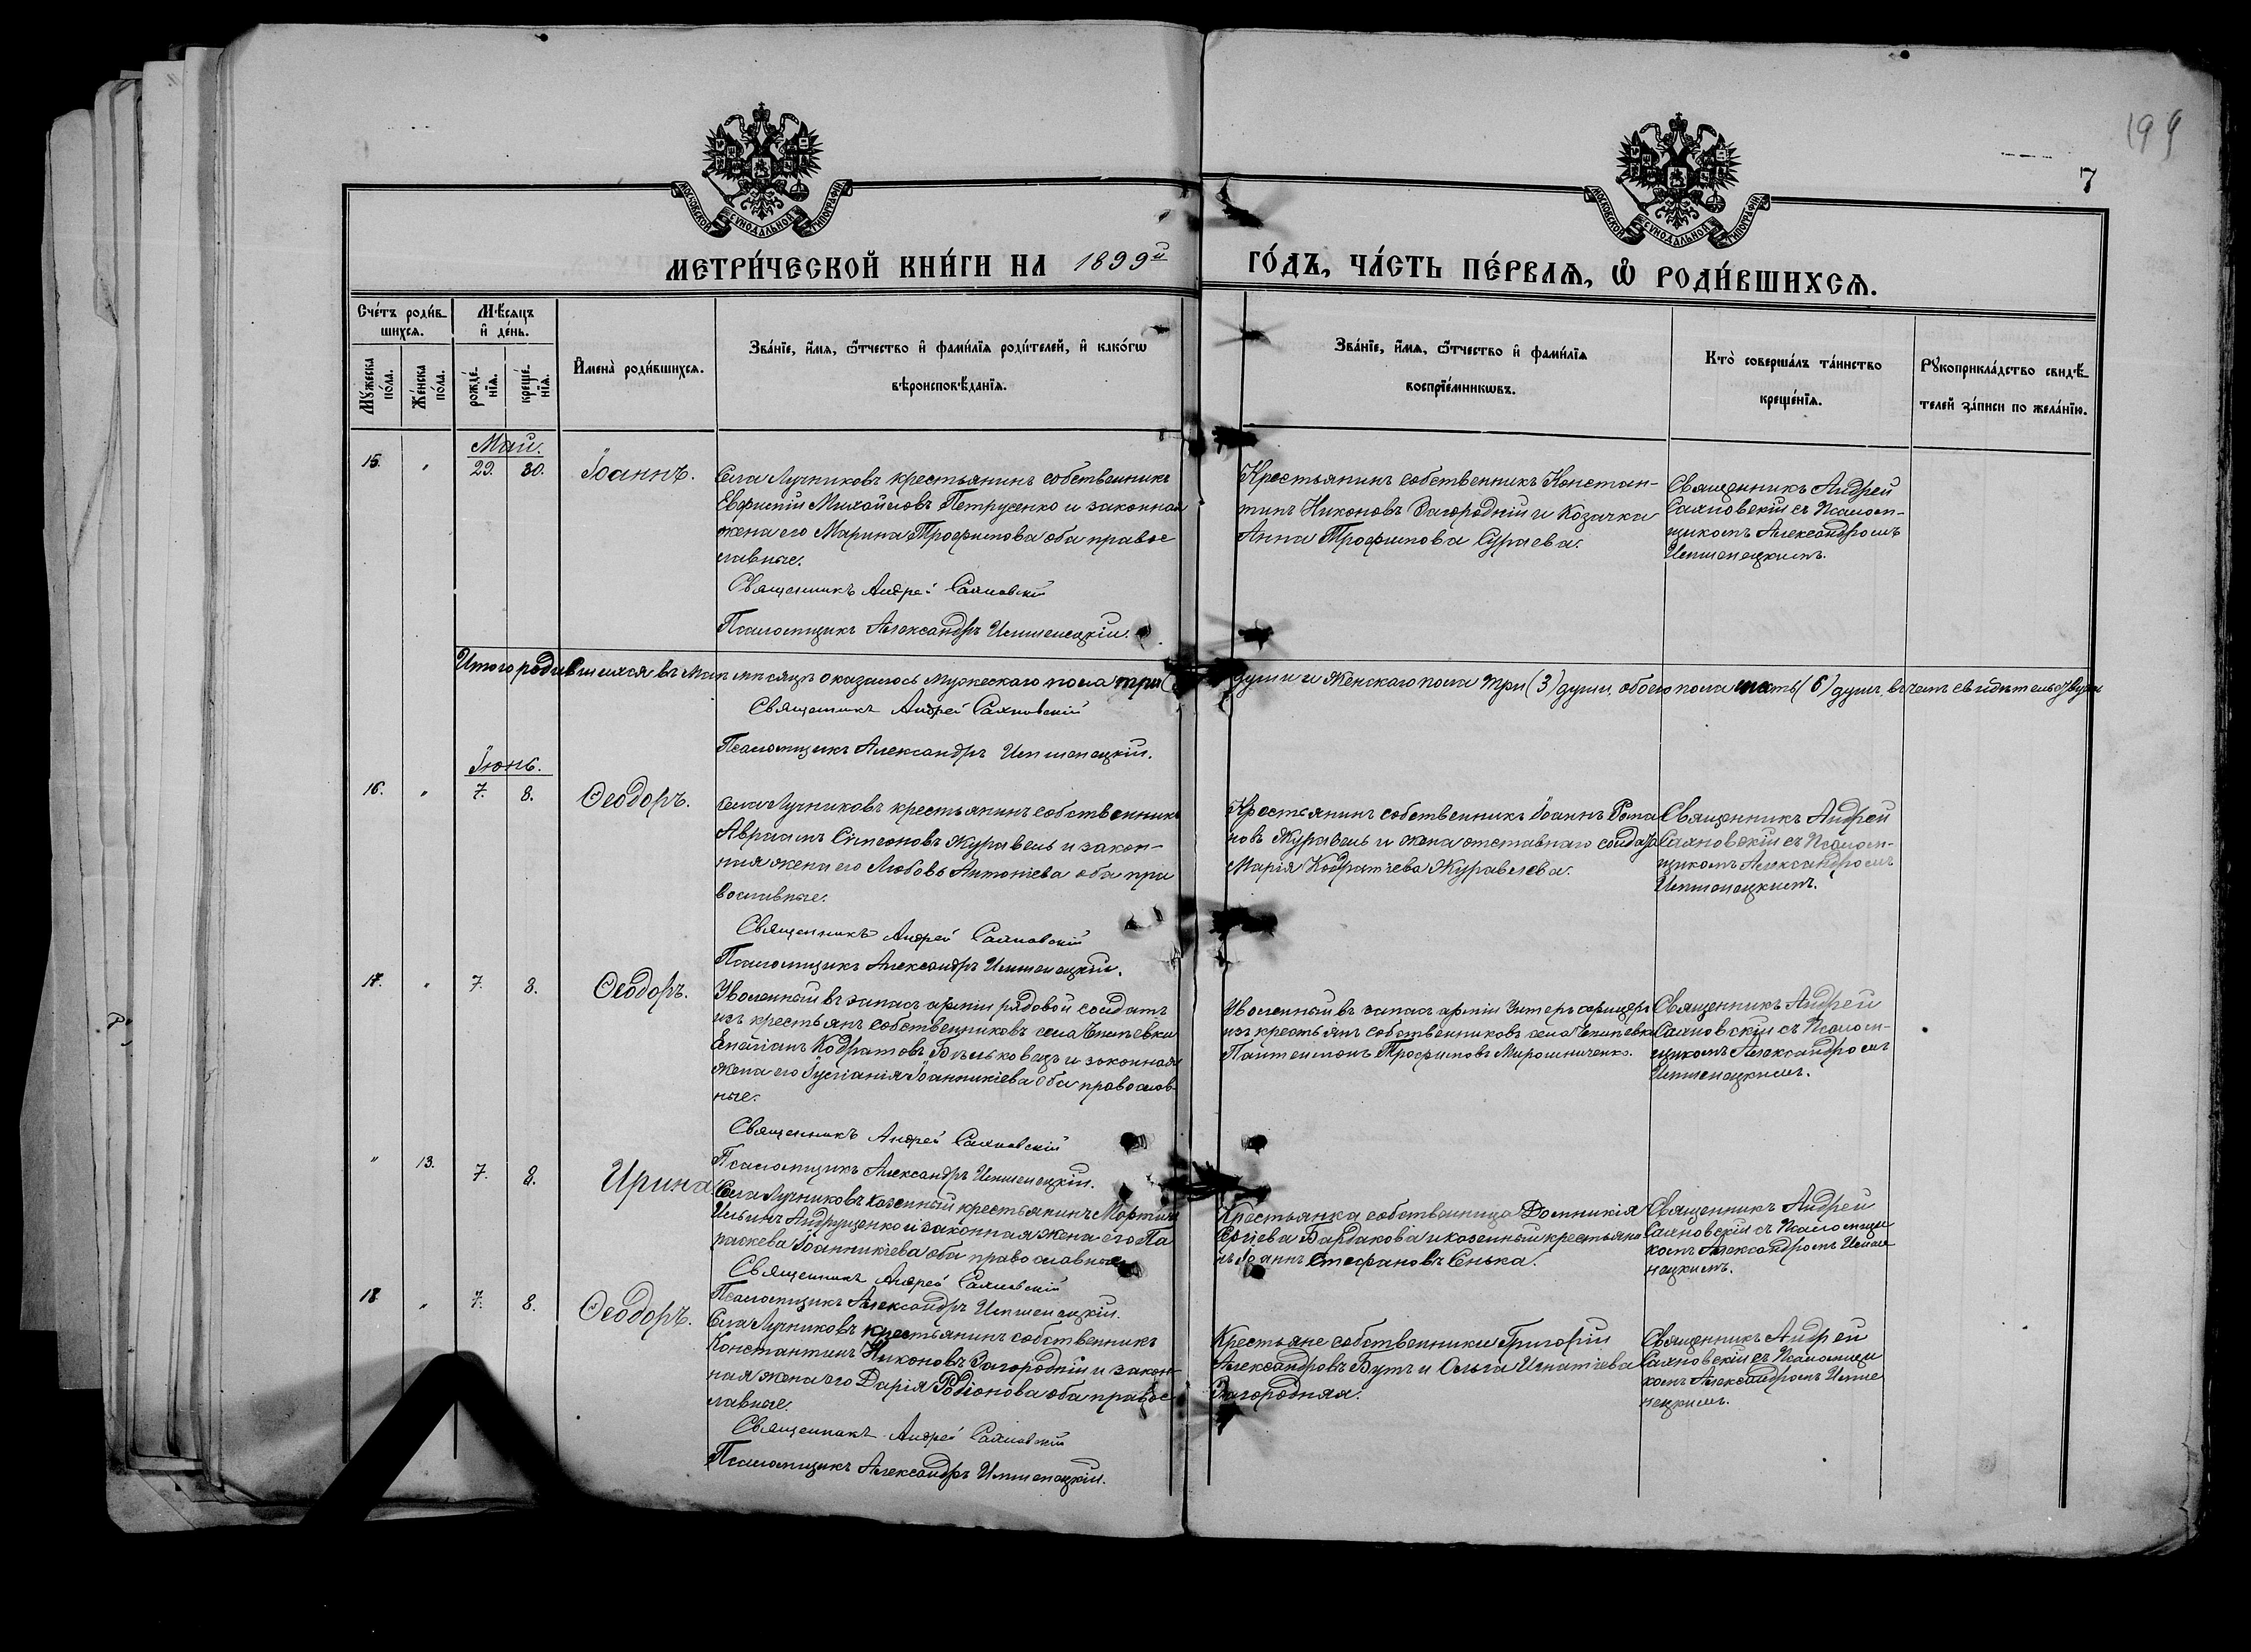 199
7
МОСКОВСКОЙ СѴНОДАЛЬНОЙ ТИПОГРАФІИ
МОСКОВСКОЙ СѴНОДАЛЬНОЙ ТИПОГРАФІИ
МЕТРИ́ЧЕСКОЙ КНИ́ГИ НА 1899й ГО́ДЪ, ЧА́СТЬ ПЕ́РВАѦ, Ѡ҆ РОДИ́ВШИХСѦ.
Сче́тъ роди́в-
шихсѧ.
Мꙋ́жеска по́ла.
Же́нска по́ла.
Мѣ́сѧцъ
и҆ де́нь.
рожде́-
нїѧ.
креще́-
нїѧ.
И҆мена̀ роди́вшихсѧ.
Зва́нїе, и҆́мѧ, ѻ҆́тчество и҆ фами́лїѧ роди́телей, и҆ како́гѡ
вѣроисповѣ́данїѧ.
Зва́нїе, и҆́мѧ, ѻ҆́тчество и҆ фами́лїѧ
воспрїе́мникѡвъ.
Кто̀ соверша́лъ та́инство
креще́нїѧ.
Рꙋкоприкла́дство свидѣ́-
телей за́писи по жела́нїю.
Май.
15. " 29. 30. Іоаннъ.
Села Лучниковъ крестьянинъ собственникъ
Евфимій Михайловъ Петрусенко и законная
жена его Марина Трофимова оба правос
лавные.
Священникъ Андрей Сахновскій
Псаломщикъ Александръ
Крестьянинъ собственникъ Констан-
тинъ Никоновъ Загородній и Козачка
Анна Трофимова Сураева.
Священникъ Андрей
Сахновскій съ Псалом-
щикомъ Александромъ
Итого родившихся въ Маѣ мѣсяцѣ оказалось мужескаго пола три (3) души и Женскаго пола три (3) души, обоего пола шесть (6) душъ, въ чемъ свидѣтельствуемъ
Священникъ Андрей Сахновскій
Псаломщикъ Александръ
Іюнь.
16. " 7. 8. Ѳеодоръ.
Села Лучниковъ крестьянинъ собственникъ
Авраамъ Сѵмеоновъ Журавель и закон-
ная жена его Любовь Антоніева оба пра
вославные.
Священникъ Андрей Сахновскій
Псаломщикъ Александръ
Крестьянинъ собственникъ Іоаннъ Рома
новъ Журавель и жена отставнаго солдата
Марія Кодратіева Журавлева.
Священникъ Андрей
Сахновскій съ Псалом-
щикомъ Александромъ
17. " 7. 8. Ѳеодоръ.
Уволенный въ запасъ арміи рядовой солдатъ
изъ крестьянъ собственниковъ села
Кодратовъ Бѣльковецъ и законная
жена его Іустіанія Іоанникіева оба православ-
ные.
Священникъ Андрей Сахновскій
Псаломщикъ Александръ
Уволенный въ запасъ арміи Унтеръ офицеръ
изъ крестьянъ собственниковъ села
Пантелимонъ Трофимовъ Мирошниченко.
Священникъ Андрей
Сахновскій съ Псалом-
щикомъ Александромъ
" 13. 7. 8. Ирина.
Села Лучниковъ казенный крестьянинъ Мартинъ
Ильинъ Андрущенко и законная жена его Па
раскева Іоанникіева оба православные
Священникъ Андрей Сахновскій
Псаломщикъ Александръ
Крестьянка собственница Домникія
Сергіева Бардакова и казенный крестьяни
нъ Іоаннъ Стефановъ Сенька.
Священникъ Андрей
Сахновскій съ Псаломщи
комъ Александромъ
18 " 7. 8. Ѳеодоръ.
Села Лучниковъ крестьянинъ собственникъ
Константинъ Никоновъ Загородній и закон-
ная жена его Дарія Родіонова оба правос
лавные.
Священникъ Андрей Сахновскій
Псаломщикъ Александръ
Крестьяне собственники Григорій
Александровъ Бутъ и Ольга Игнатіева
Загородняя.
Священникъ Андрей
Сахновскій съ Псаломщи
комъ Александромъ